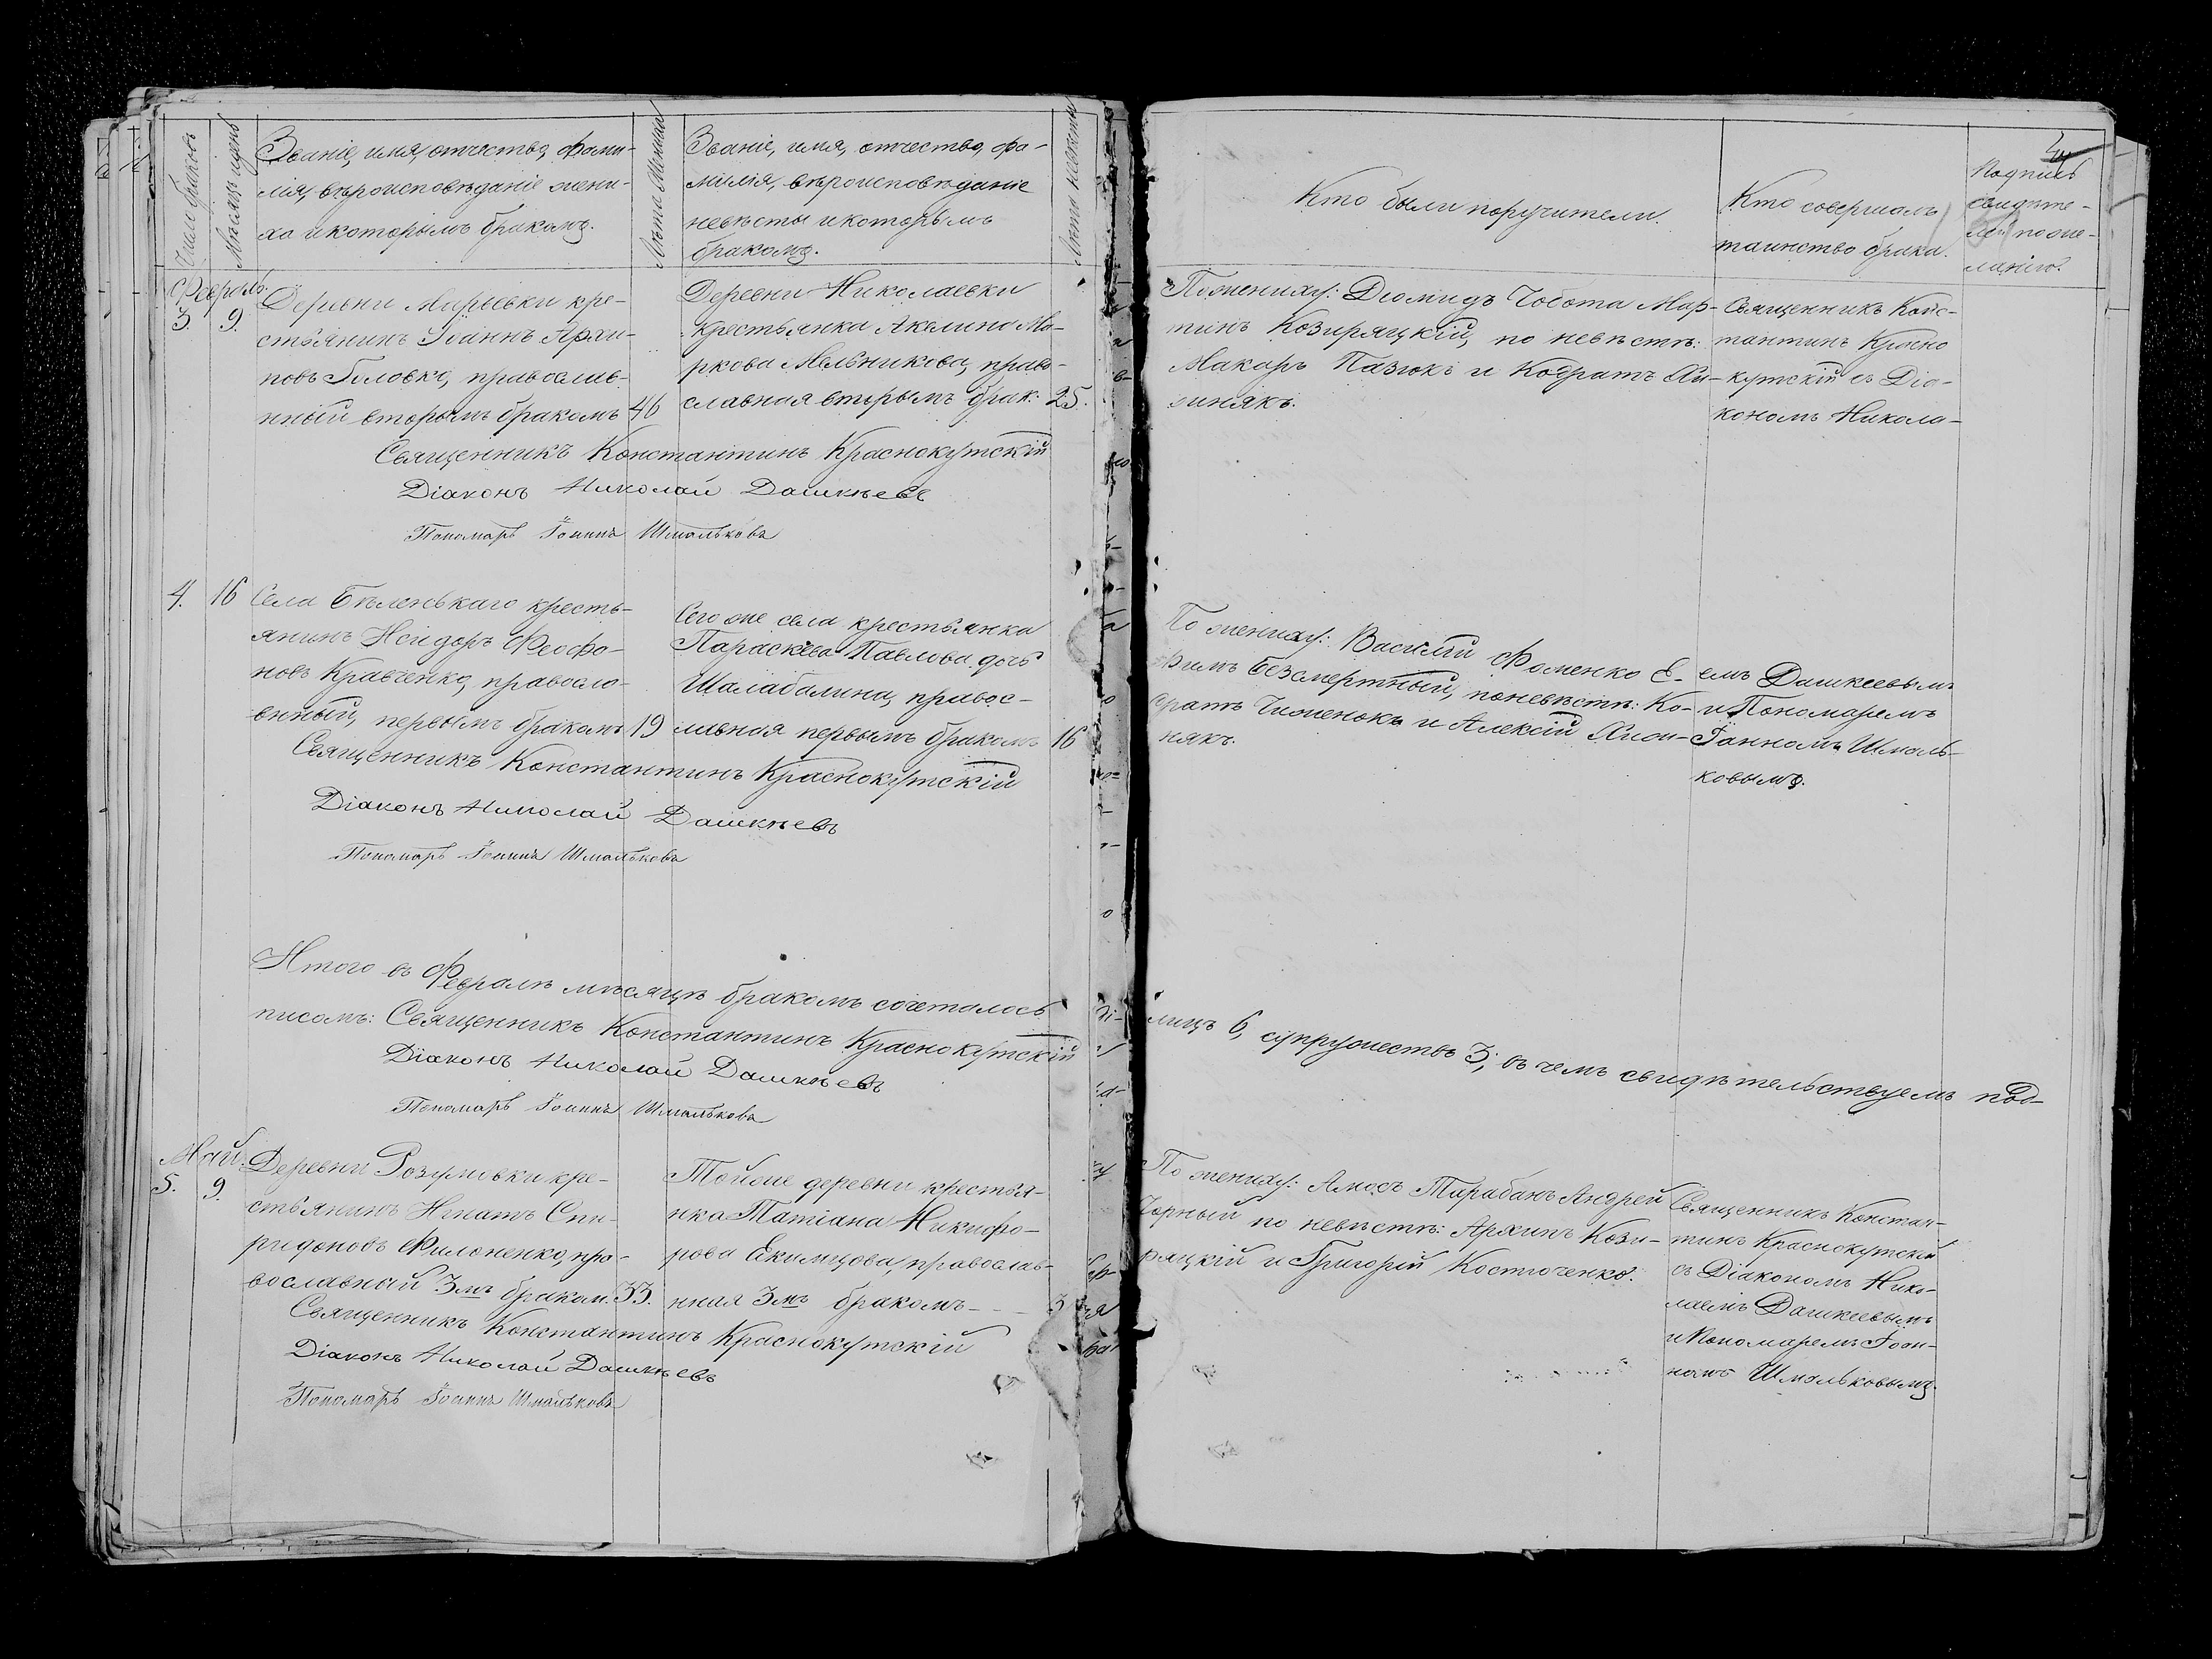 Счетъ браковъ
Мѣсяцъ и день
Званіе, имя, отчество, фами-
лія, вѣроисповѣданіе жени-
ха и которымъ бракомъ.
Лѣта жениха
Званіе, имя, отчество, фа-
милія, вѣроисповѣданіе
невѣсты и которымъ
бракомъ.
Лѣта невѣсты
Кто были поручители.
Кто совершалъ
таинство брака.
Подпись
свидѣте-
лей по же-
ланію.
Февраль.
3. 9.
Деревни Марьевки кре-
стьянинъ Іоаннъ Архи-
повъ Головко, православ-
нный вторымъ бракомъ 46
Деревни Николаевки
крестьянка Акилина Ма-
ркова Мельникова, право-
славная вторымъ брак. 25.
По жениху: Діомидъ Чобота Мар-
тинъ Козиряцкій, по невѣстѣ:
Макаръ Пазюкъ и Кодратъ Ли-
жнякъ.
Священникъ Конс-
тантинъ Красно
кутскій съ Діа-
кономъ Никола-
Священникъ Константинъ Краснокутскій
Діаконъ Николай Дашкѣевъ
Пономарь Іоаннъ Шмальковъ
4. 16
Села Бѣленькаго кресть-
янинъ Исидоръ Феофа-
новъ Кравченко, правосла-
вный, первымъ бракомъ 19
Сего же села крестьянка
Параскева Павлова дочь
Шалабалина, правос-
лавная первымъ бракомъ 16
По жениху: Василій Фоменко Е-
фимъ Безсмертный, по невѣстѣ: Ко-
дратъ и Алексій
някъ.
емъ Дашкеевымъ
и Пономаремъ
Іоанномъ Шмаль-
ковымъ.
Священникъ Константинъ Краснокутскій
Діаконъ Николай Дашкѣевъ
Пономарь Іоаннъ Шмальковъ
Итого въ Февралѣ мѣсяцѣ бракомъ сочеталось
лицъ 6, супружествъ 3; въ чемъ свидѣтельствуемъ под-
писомъ: Священникъ Константинъ Краснокутскій
Діаконъ Николай Дашкѣевъ
Пономарь Іоаннъ Шмальковъ
Май.
5. 9.
Деревни Розумовки кре-
стьянинъ Игнатъ Спи-
ридоновъ Филоненко, пра-
вославный 3мъ браком. 33.
Той же деревни крестья-
нка Татіана Никифо-
рова Екимцова, православ-
нная 3мъ бракомъ - - 3
По жениху: Амосъ Тарабанъ Андрей
Чорный по невѣстѣ: Архипъ Кози-
ряцкій и Григорій Костюченко.
Священникъ Констан-
тинъ Краснокутскій
съ Діакономъ Нико-
лаемъ Дашкеевымъ
и Пономаремъ Іоан-
номъ Шмальковымъ.
Священникъ Константинъ Краснокутскій
Діаконъ Николай Дашкѣевъ
Пономарь Іоаннъ Шмальковъ